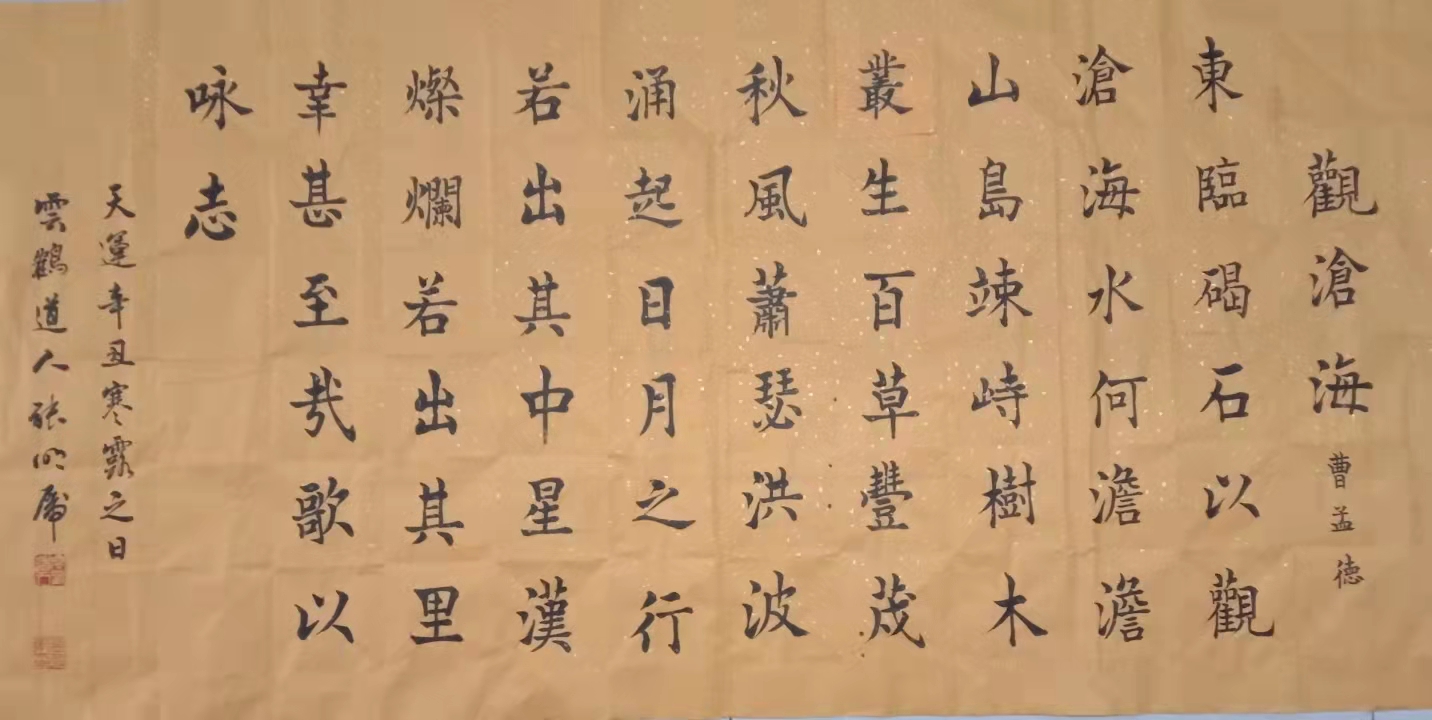 觀滄海 曹孟德
東臨碣石以觀
滄海水何澹澹
山島竦峙樹木
叢生百草豐茂
秋風蕭瑟洪波
涌起日月之行
若出其中星漢
燦爛若出其里
幸甚至哉歌以
咏志
天運辛丑寒露之日
雲鶴道人張明